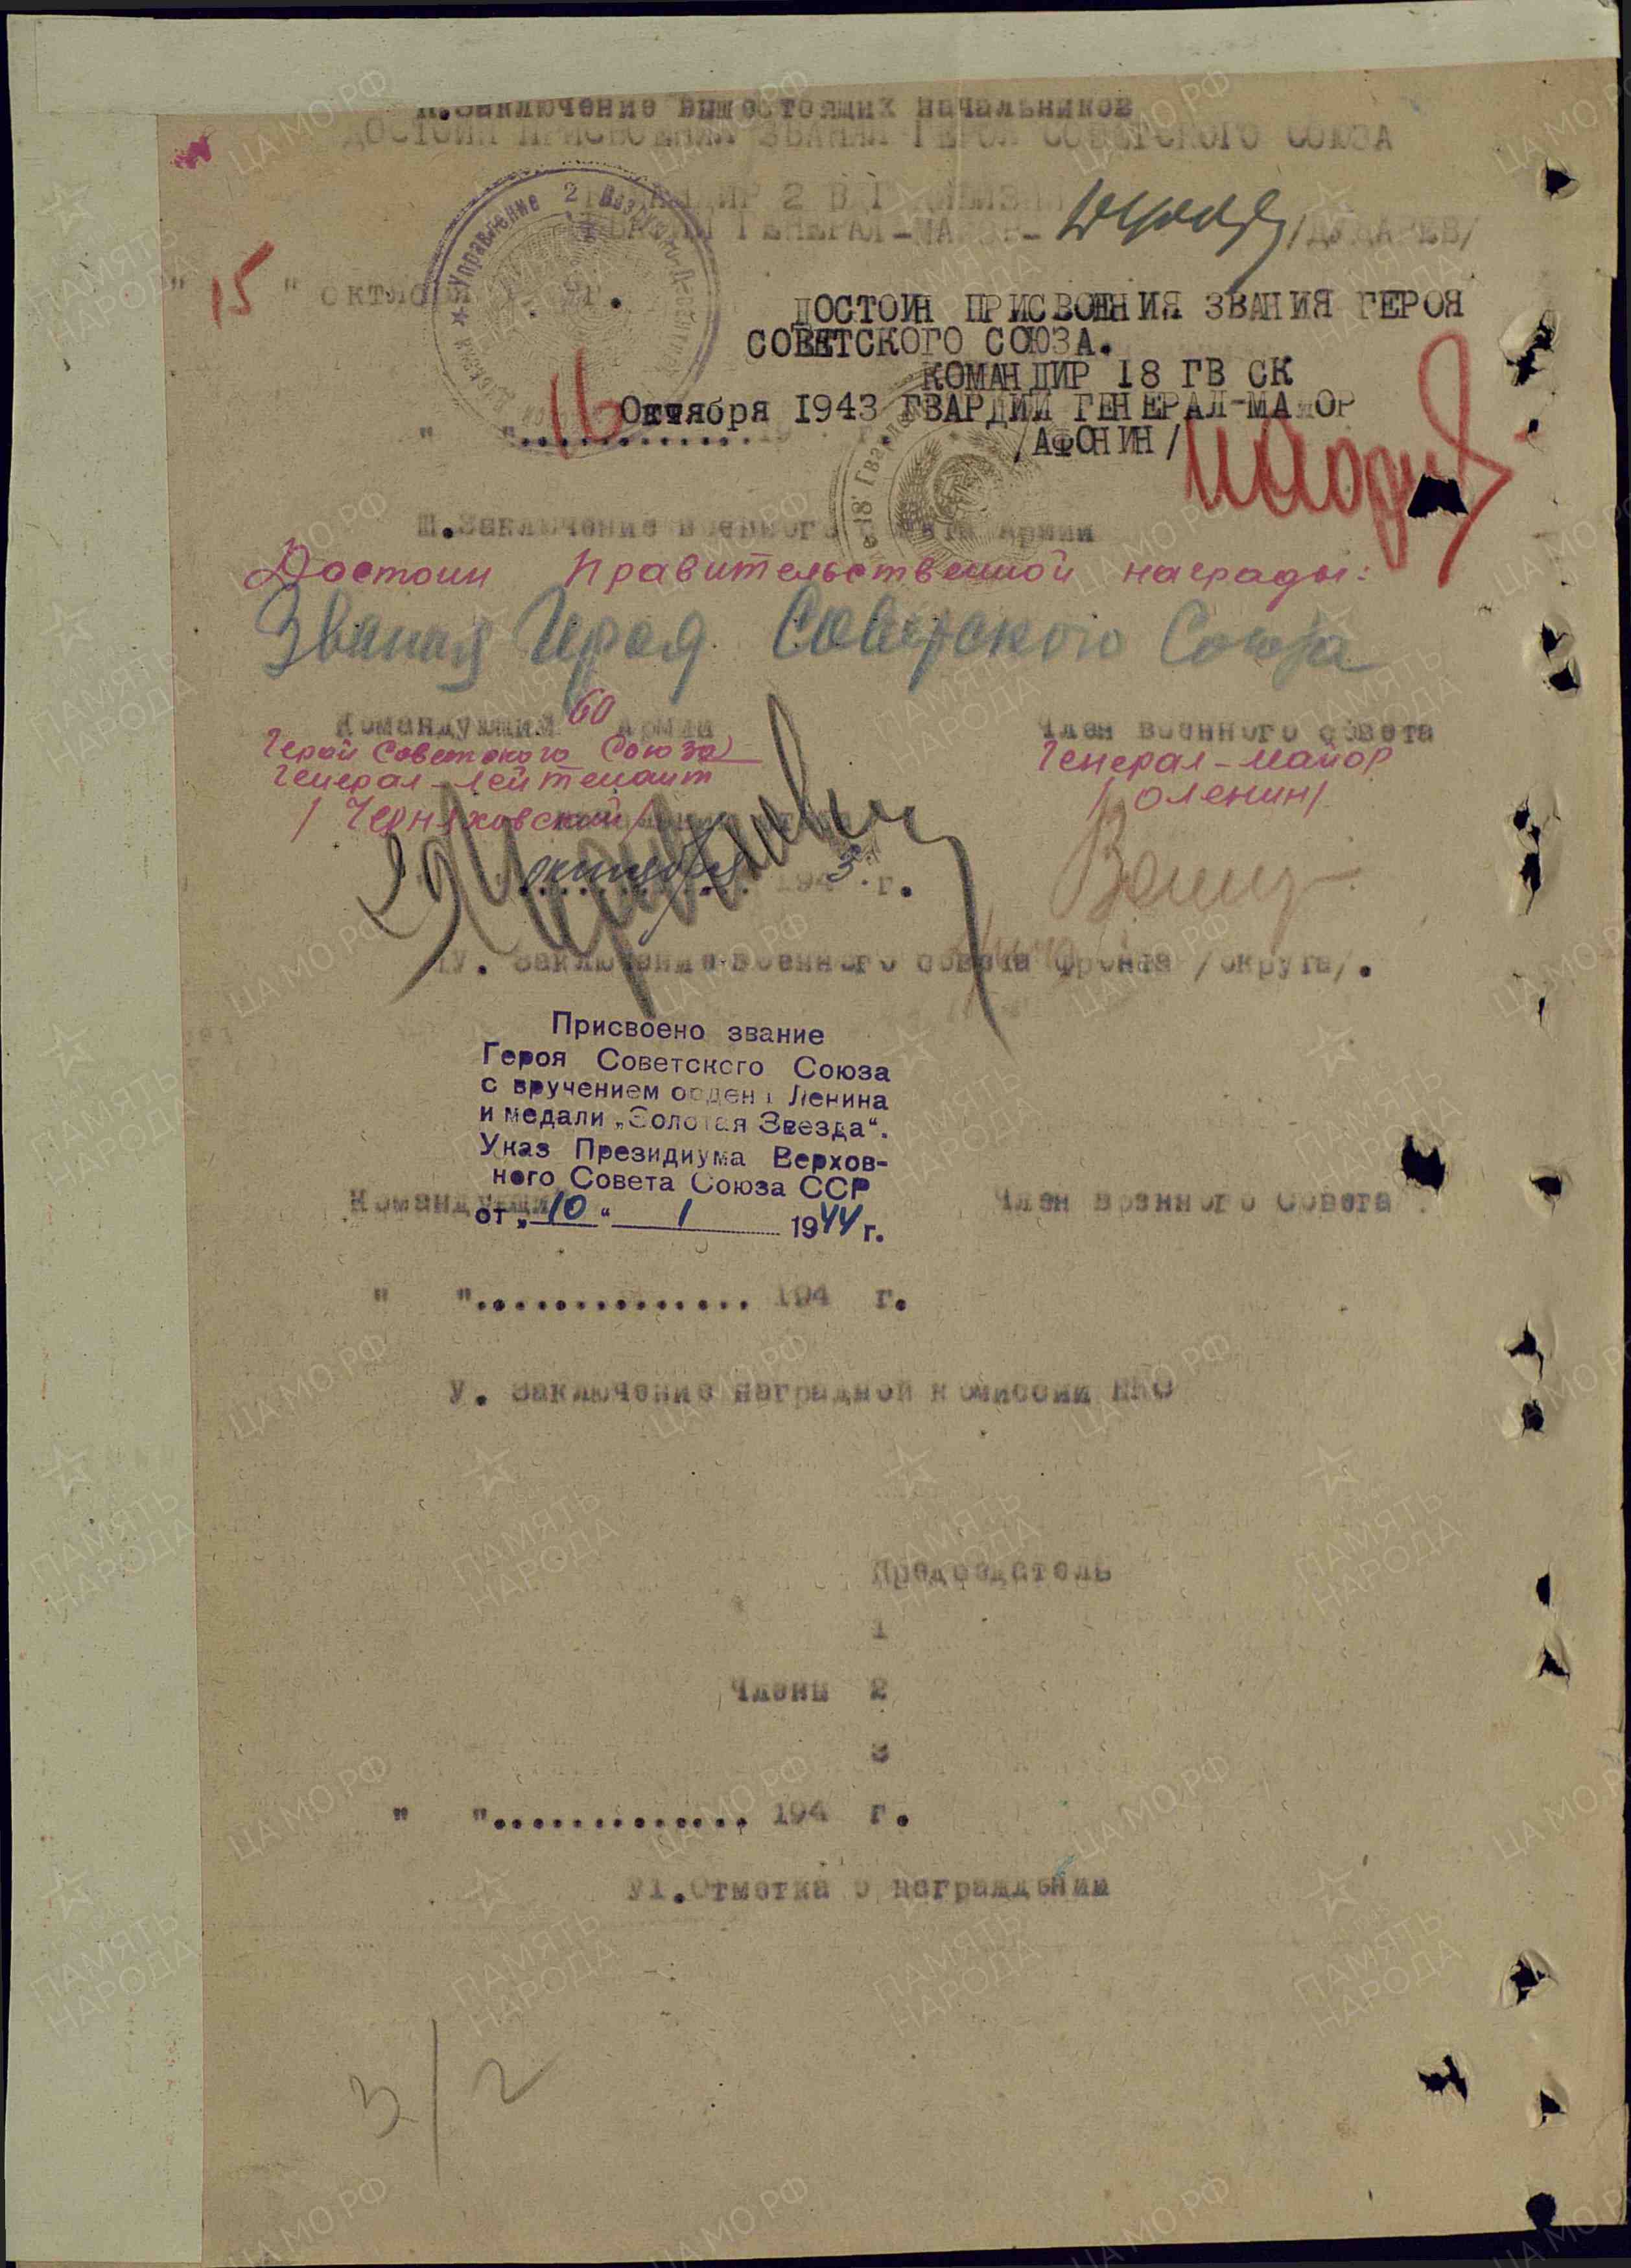 II.Заключение вышестоящих начальников
ДОСТОИН ПРИСВОЕНИЯ ЗВАНИЯ ГЕРОЯ СОВЕТСКОГО СОЮЗА
КОМАНДИР 2 ВДГ ДИВИЗИИ
ГВАРДИИ ГЕНЕРАЛ-МАЙОР- /ДУДАРЕВ/
" 15 " октября г.
Управление 2 Воздушно-Десантн
ДОСТОИН ПРИСВОЕНИЯ ЗВАНИЯ ГЕРОЯ
СОВЕТСКОГО СОЮЗА.
КОМАНДИР 18 ГВ СК
16 Октября 1943 ГВАРДИИ ГЕНЕРАЛ-МАЙОР
/АФОНИН/
" ".............19 г.
18 Гвард
Ш.Заключение военного совета армии
Достоин Правительственной награды:
Звания Героя Советского Союза
Командующий 60 армии
Герой Советского Союза
Генерал-лейтенант
/Черняховский/
Член военного совета
Генерал-майор
/Оленин/
29 октября 1943 г.
1У. Заключение военного совета фронта /округа/.
Присвоено звание
Героя Советского Союза
с вручением ордена Ленина
и медали „Золотая Звезда“.
Указ Президиума Верхов-
ного Совета Союза ССР
от „10“ 1 1944 г.
Командующий
Член военного Совета
" ".............. 194 г.
У. Заключение наградной комиссии НКО
Председатель
1
Члены 2
3
" "............. 194 г.
У1.Отметка о награждении
3/2
ПАМЯТЬ НАРОДА
ЦА МО РФ